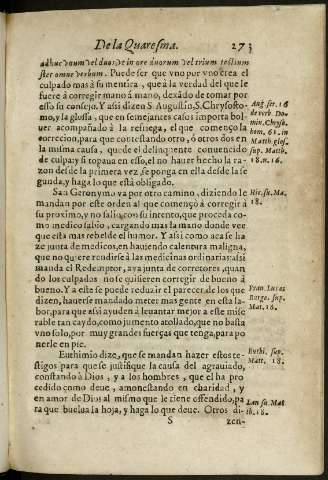 De la Quaresma. 273
adhuc vnum vel duos: vt in ore duorum vel trium testium
stet omne verbum. Puede ser que vno por vno crea el
culpado mas à su mentira, que à la verdad del que le
fuere à corregir mano à mano, dexado de tomar por
esso su consejo. Y assi dizen S. Augustin, S. Chrysosto-
mo, y la glossa, que en semejantes casos importa bol-
uer acompañado à la refriega, el que començo la
correccion, para que contestando otro, ò otros dos en
la misma causa, quede el delinquente conuencido
de culpa: y si topaua en esso, el no hauer hecho la ra-
zon desde la primera vez se ponga en ella desde la se
gunda, y haga lo que està obligado.
Aug. ser. 16
de verb. Do-
min. Chryso.
hom. 61. in
Matth. glos.
sup. Matth.
18. n. 16.
San Geronymo va por otro camino, diziendo le
mandan por este orden al que començò à corregir à
su proximo, y no salio con su intento, que proceda co-
mo medico sabio, cargando mas la mano donde vee
que esta mas rebelde el humor. Y assi como acà se ha
ze junta de medicos, en hauiendo calentura maligna,
que no quiere rendirse à las medicinas ordinarias: assi
manda el Redemptor, aya junta de corretores, quan
do los culpados no se quisieren corregir de bueno à
bueno. Y a este se puede reduzir el parecer de los que
dizen, hauerse mandado meter mas gente en esta la-
bor, para que assi ayuden à leuantar mejor a este mise
rable tan caydo, como jumento atollado, que no basta
vno solo, por muy grandes fuerças que tenga, para po
nerle en pie.
Hie. su. Ma.
18.
Fran. Lucas
Burge. sup.
Mat. 16.
Euthimio dize, que se mandan hazer estos te-
stigos para que se justifique la causa del agrauiado,
constando à Dios, y a los hombres, que el ha pro
cedido como deue, amonestando en charidad, y
en amor de Dios al mismo que le tiene offendido, pa
ra que buelua la hoja, y haga lo que deue. Otros di-
Euthi. sup.
Matt. 18.
Ian su. Mat
th. 18.
S zen-